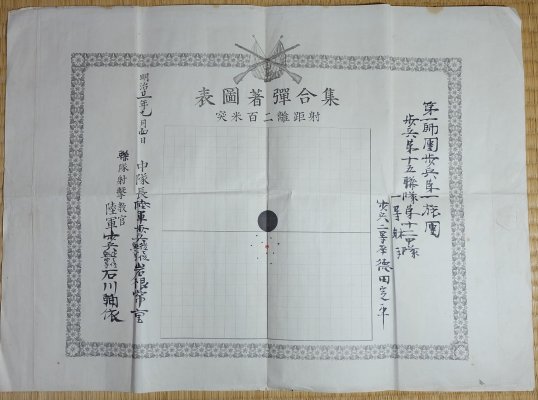 集合彈著圖表
射距離二百米突
第一師團歩兵第一旅團
歩兵第十五聯隊第十二中隊
一等射手
歩兵二等卒德田平
明治年月日
中隊長陸軍歩兵大尉岩根常重
聯隊射撃教官
陸軍歩兵大尉石川輔依